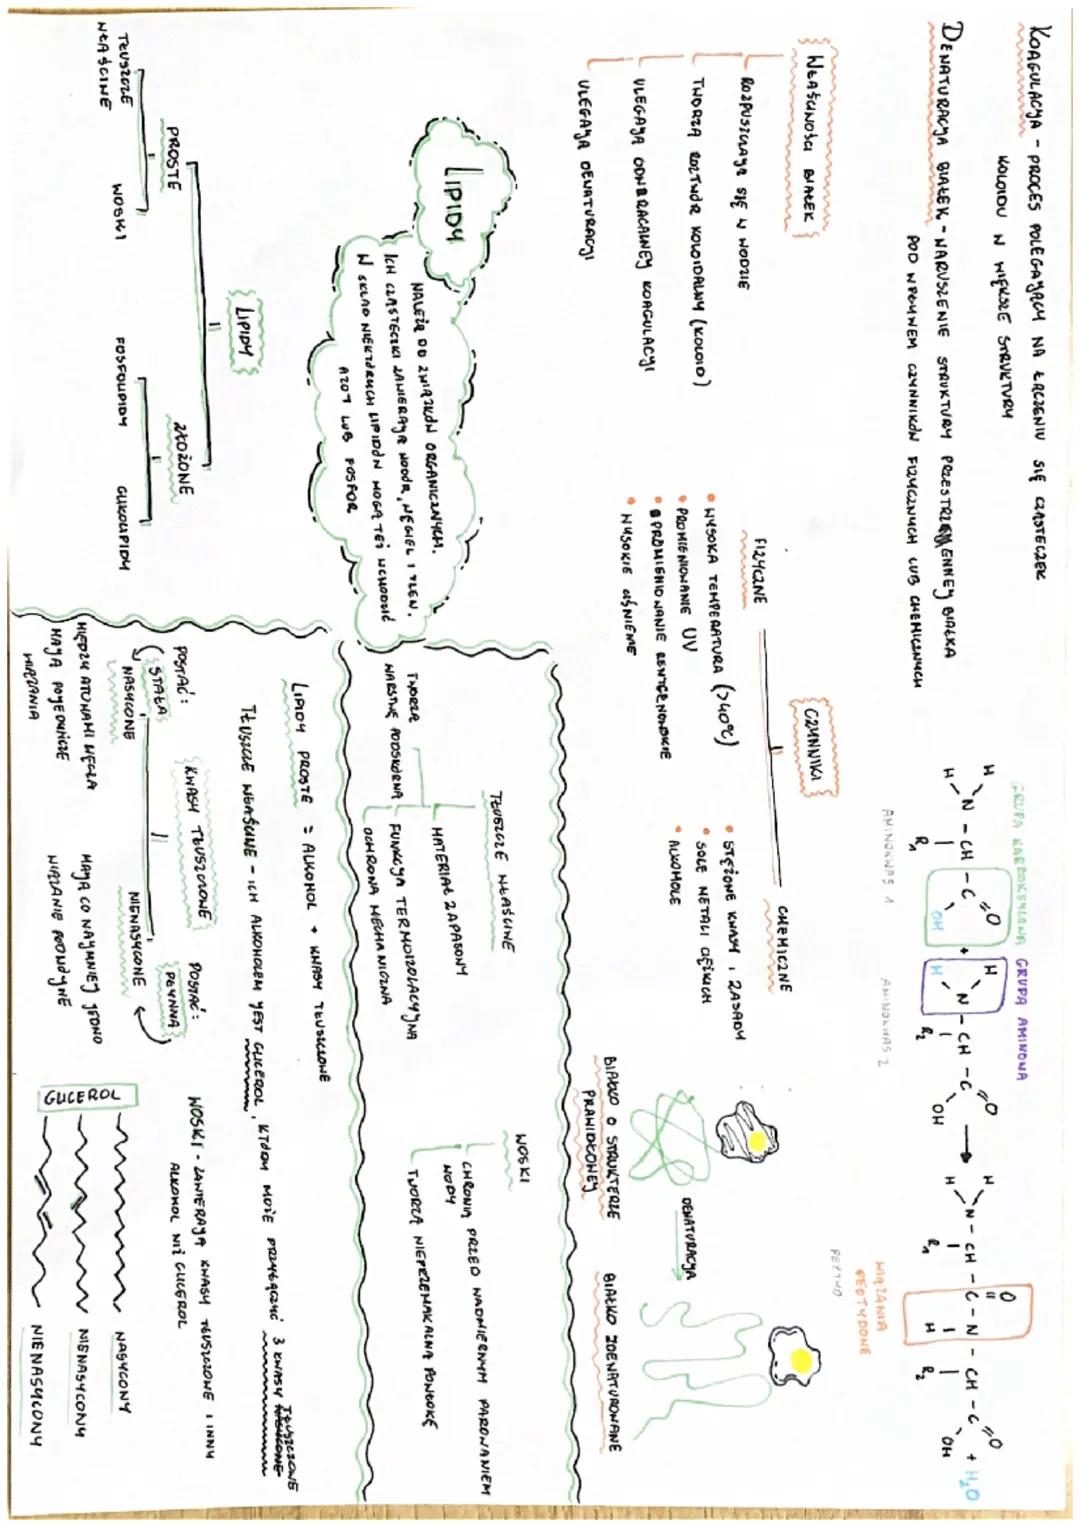 KOAGULACJA - PROCES POLEGAJĄCY NA ŁĄCZENIU SIĘ CZĄSTECZEK
KOLOIDU W WIĘKSZE STRUKTURY
DENATURACJA BIAŁEK - NARUSZENIE STRUKTURY PRZESTRZENNEJ BIAŁKA
POD WPŁYWEM CZYNNIKÓW FIZYCZNYCH LUB CHEMICZNYCH
GRUPA KARBOKSYLOWA GRUPA AMINOWA
H H N - CH - C =O OH + H H N - CH - C =O OH → H H N - CH - C - N - CH - C =O OH + H₂O
R₁ R₂ R₁ O H R₂
AMINOKWAS 1
AMINOKWAS 2
WIĄZANIA
PEPTYDOWE
PEPTYD
WŁAŚCIWOŚCI BIAŁEK
ROZPUSZCZAJĄ SIĘ W WODZIE
TWORZĄ ROZTWÓR KOLOIDALNY (KOLOID)
ULEGAJĄ ODWRACALNEJ KOAGULACJI
ULEGAJĄ DENATURACJI
CZYNNIKI
FIZYCZNE
• WYSOKA TEMPERATURA (>40°C)
• PROMIENIOWANIE UV
• PROMIENIOWANIE RENTGENOWSKIE
• WYSOKIE CIŚNIENIE
CHEMICZNE
• STĘŻONE KWASY I ZASADY
• SOLE METALI CIĘŻKICH
• ALKOHOLE
DENATURACJA
BIAŁKO O STRUKTURZE
PRAWIDŁOWEJ
BIAŁKO ZDENATUROWANE
LIPIDY
NALEŻĄ DO ZWIĄZKÓW ORGANICZNYCH.
ICH CZĄSTECZKI ZAWIERAJĄ WODÓR, WĘGIEL I TLEN.
W SKŁAD NIEKTÓRYCH LIPIDÓW MOGĄ TEŻ WCHODZIĆ
AZOT LUB FOSFOR
TŁUSZCZE WŁAŚCIWE
MATERIAŁ ZAPASOWY
FUNKCJA TERMOIZOLACYJNA
OCHRONA MECHANICZNA
TWORZĄ
WARSTWĘ PODSKÓRNĄ
WOSKI
CHRONIĄ PRZED NADMIERNYM PAROWANIEM
WODY
TWORZĄ NIEPRZEMAKALNĄ POWŁOKĘ
LIPIDY
PROSTE
ZŁOŻONE
TŁUSZCZE
WŁAŚCIWE
WOSKI
FOSFOLIPIDY
GLIKOLIPIDY
LIPIDY PROSTE = ALKOHOL + KWASY TŁUSZCZOWE
TŁUSZCZE WŁAŚCIWE - ICH ALKOHOLEM JEST GLICEROL, KTÓRY MOŻE PRZYŁĄCZYĆ 3 KWASY TŁUSZCZOWE
KWASY TŁUSZCZOWE
POSTAĆ:
STAŁA
NASYCONE
MIĘDZY ATOMAMI WĘGLA
MAJĄ POJEDYNCZE
WIĄZANIA
POSTAĆ:
PŁYNNA
NIENASYCONE
MAJĄ CO NAJMNIEJ JEDNO
WIĄZANIE PODWÓJNE
WOSKI - ZAWIERAJĄ KWASY TŁUSZCZOWE I INNY
ALKOHOL NIŻ GLICEROL
GLICEROL
NASYCONY
NIENASYCONY
NIENASYCONY